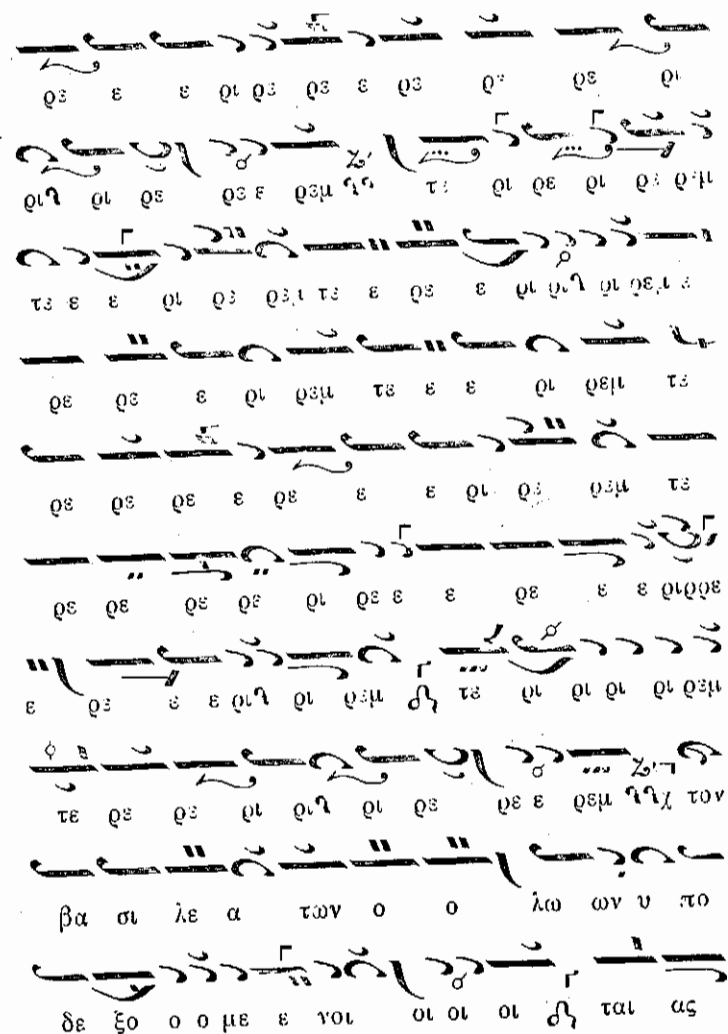 ρε ε ε ρι ρε ρε ε ρε ρε ρε ρι
ρι ρι ρε ρε ε ρεμ τε ρι ρε ρι ρε ρεμ
τε ε ε ρι ρε ρεμ τε ε ρε ε ρι ρι ρι ρεμ τε
ρε ρε ε ρι ρεμ τε ε ε ρι ρεμ τε
ρε ρε ρε ε ρε ε ε ρι ρε ρεμ τε
ρε ρε ρε ρε ρι ρε ε ε ρε ε ε ρι ρε ρε
ε ρε ε ε ρι ρι ρεμ τε ρι ρι ρι ρι ρεμ
τε ρε ρε ρι ρι ρι ρε ρε ε ρεμ τον
βα σι λε α των ο ο λω ων υ πο
δε ξο ο ο με ε νοι οι οι οι ται ας